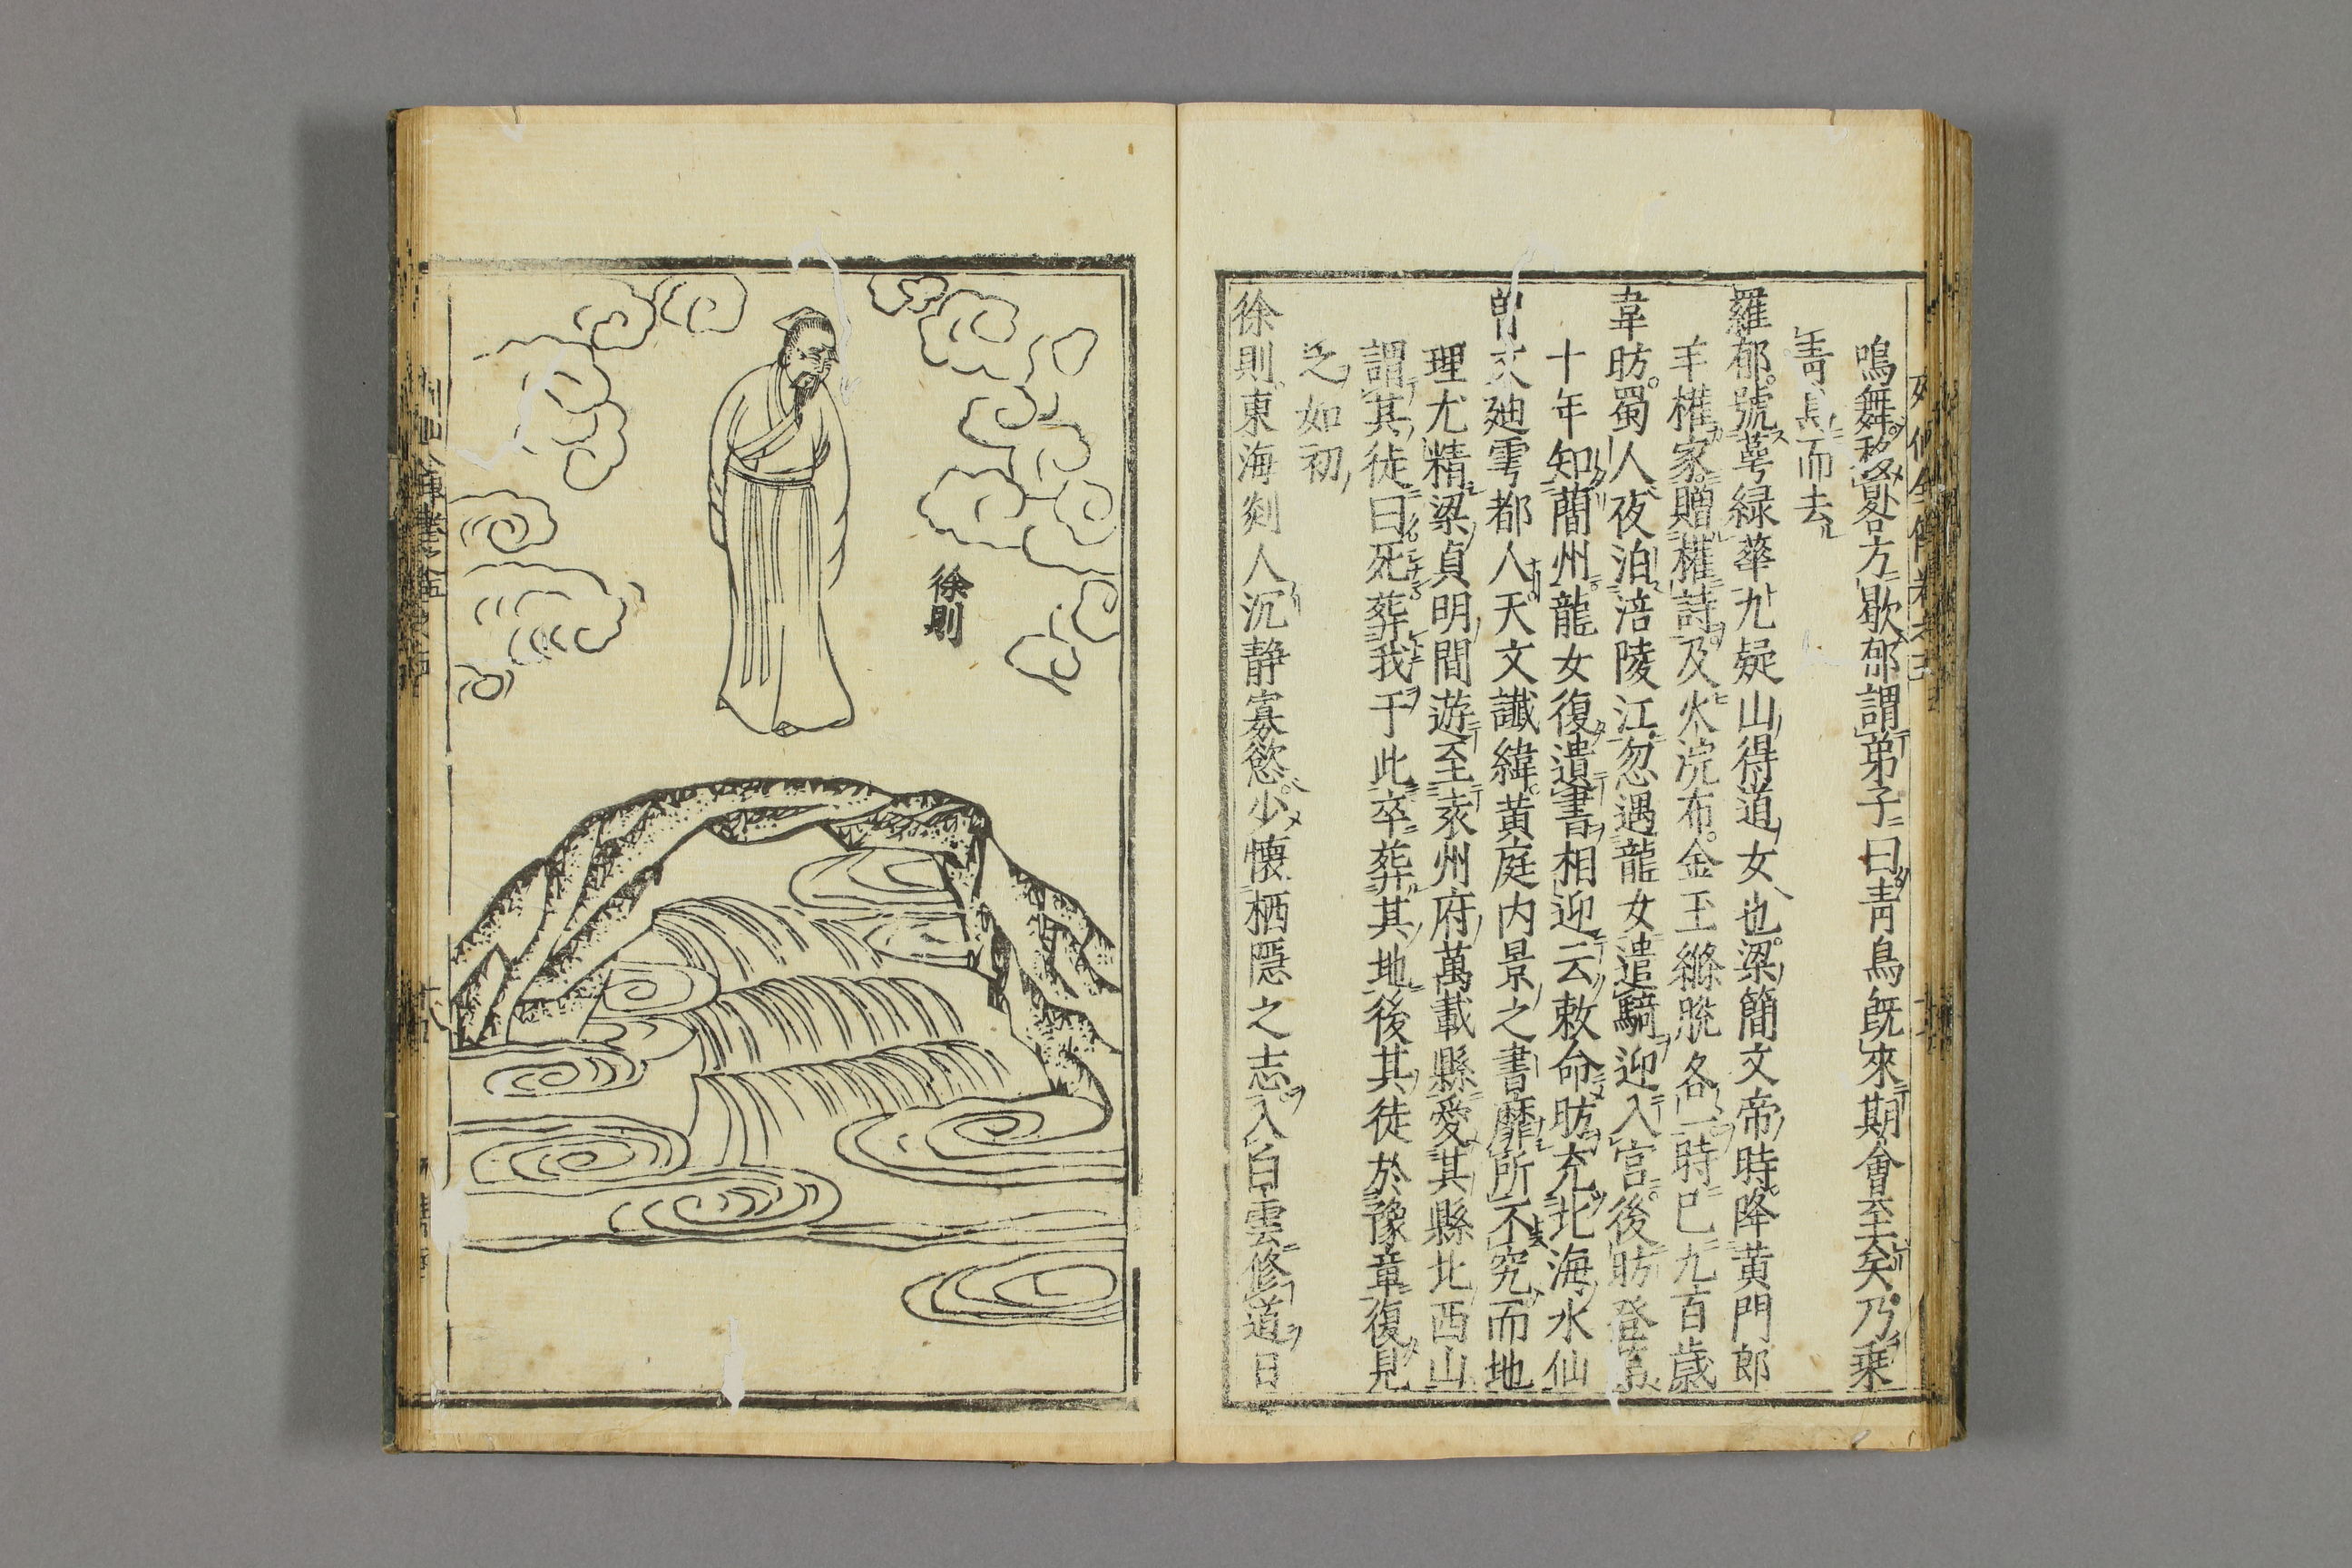 鳴舞移晷方歇郁謂弟子曰青鳥既來期會至矣乃乗
青鳥而去
羅郁號萼緑華九疑山得道女也梁簡文帝時降黄門郎
羊權家贈權詩及火浣布金玉條脱各一時已九百歳
韋昉蜀人夜泊涪陵江忽遇龍女遣騎迎入宮後昉登第
十年知蘭州龍女復遺書相迎云敕命昉充北海水仙
曽文迪雩都人天文讖緯黄庭内景之書靡所不究而地
理尤精梁貞明間遊至袁州府萬載縣愛其縣北西山
謂其徒曰死葬我于此卒葬其地後其徒於豫章復見
之如初
徐則東海剡人沉静寡慾少懐栖隠之志入白雲修道日
徐則